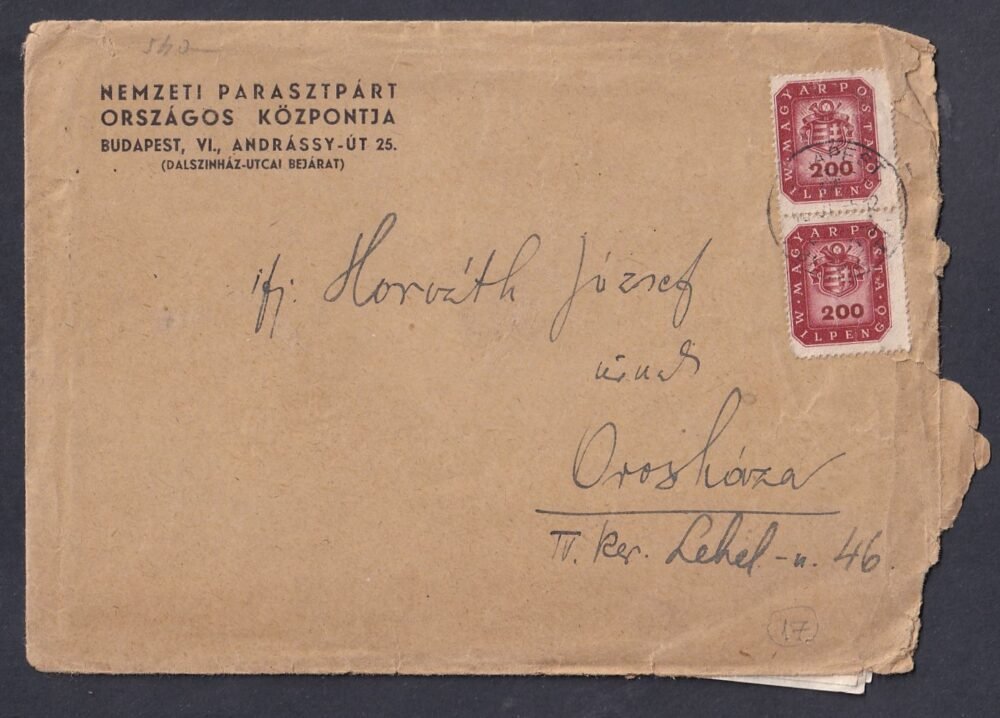 NEMZETI PARASZTPÁRT
ORSZÁGOS KÖZPONTJA
BUDAPEST, VI., ANDRÁSSY-ÚT 25.
(DALSZINHÁZ-UTCAI BEJÁRAT)
MAGYAR POSTA
200
MILPENGŐ
MAGYAR POSTA
200
MILPENGŐ
ifj. Horváth József
úrnak
Orosháza
IV. ker. Lehel-u. 46.
17